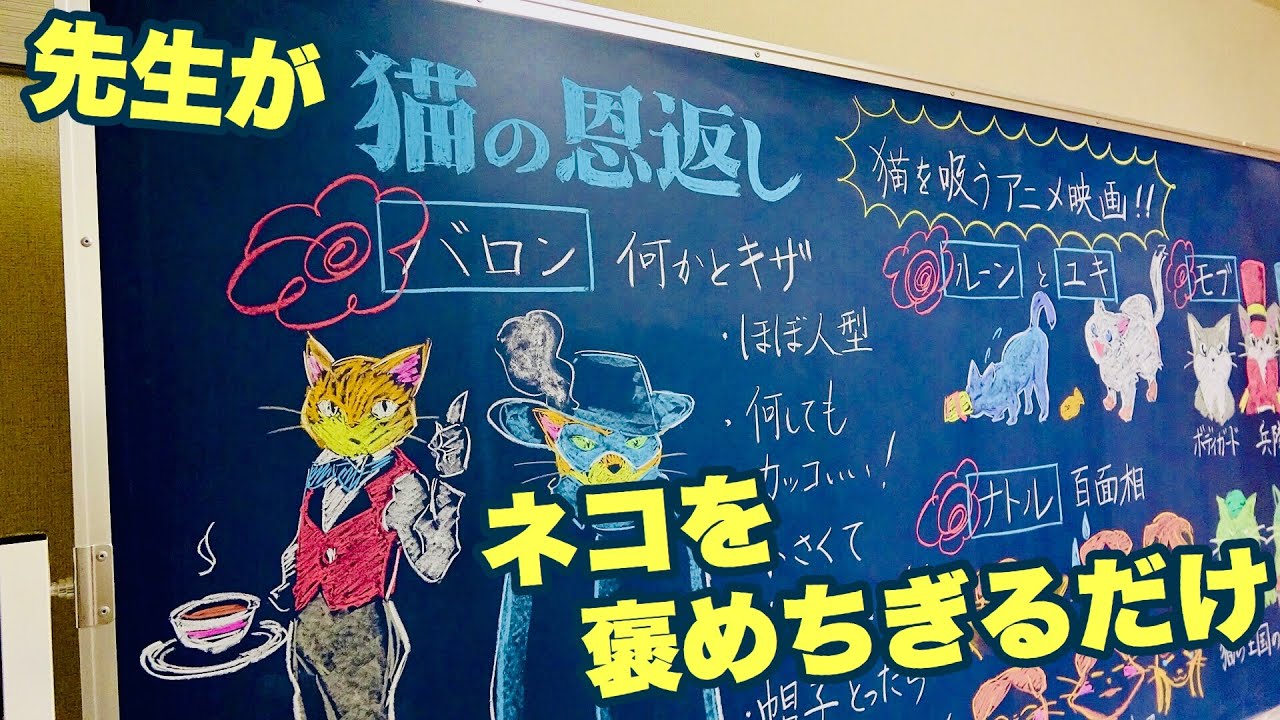 先生が
猫の恩返し
猫を吸うアニメ映画!!
バロン 何かとキザ
・ほぼ人型
・何しても
カッコいい!
さくて
・帽子とったら
ルーンとユキ
モブ
ボディガード
ナトル 百面相
ネコを
褒めちぎるだけ